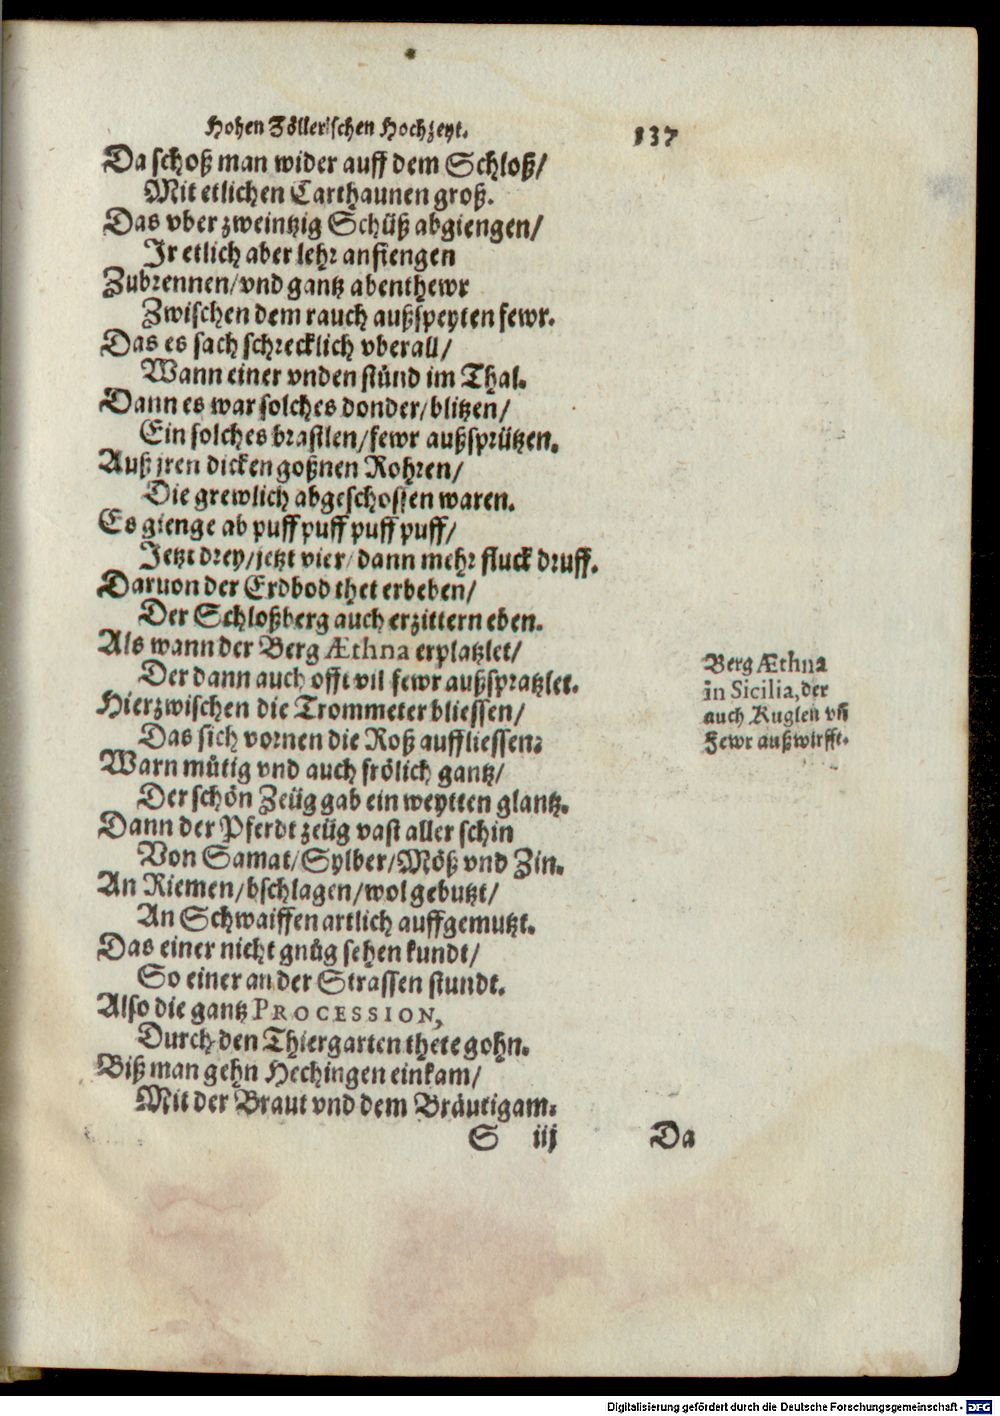 Hohen Zöllerischen Hochzeyt. 137
Da schoß man wider auff dem Schloß/
Mit etlichen Carthaunen groß.
Das vber zweintzig Schüß abgiengen/
Ir etlich aber lehr anfiengen
Zubrennen/vnd gantz abenthewr
Zwischen dem rauch außspeyten fewr.
Das es sach schrecklich vberall/
Wann einer vnden stünd im Thal.
Dann es war solches donder/blitzen/
Ein solches brastlen/fewr außsprützen.
Auß jren dicken goßnen Rohren/
Die grewlich abgeschossen waren.
Es gienge ab puff puff puff puff/
Jetzt drey/jetzt vier/dann mehr fluck druff.
Daruon der Erdbod thet erbeben/
Der Schloßberg auch erzittern eben.
Als wann der Berg Æthna erplatzlet/
Der dann auch offt vil fewr außspratzlet.
Hierzwischen die Trommeter bliessen/
Das sich vornen die Roß auffliessen:
Warn mütig vnd auch frölich gantz/
Der schön Zeüg gab ein weytten glantz.
Dann der Pferdt zeüg vast aller schin
Von Samat/Sylber/Möß vnd Zin.
An Riemen/bschlagen/wol gebutzt/
An Schwaiffen artlich auffgemutzt.
Das einer nicht gnüg sehen kundt/
So einer an der Strassen stundt.
Also die gantz PROCESSION,
Durch den Thiergarten thete gohn.
Biß man gehn Hechingen einkam/
Mit der Braut vnd dem Bräutigam.
S iij Da
Berg Æthna
in Sicilia, der
auch Kuglen vñ
Fewr außwirfft.
Digitalisierung gefördert durch die Deutsche Forschungsgemeinschaft - DFG